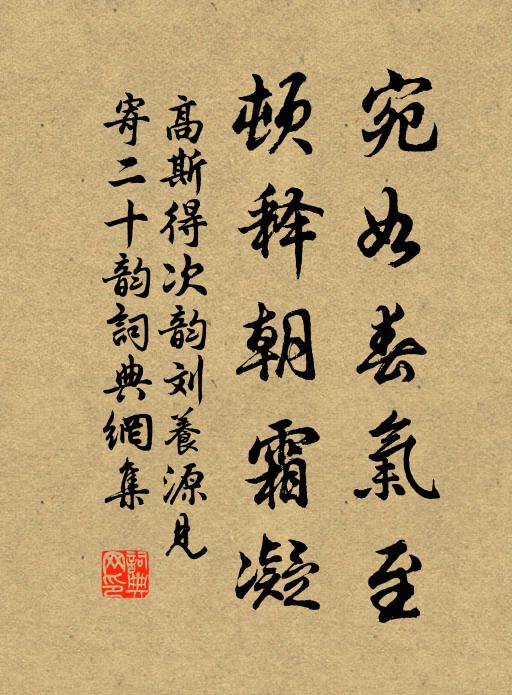 宛如春氣至
頓释朝霜凝
高斯得次韵刘養源見
寄二十韵詞典網集
詞典网印